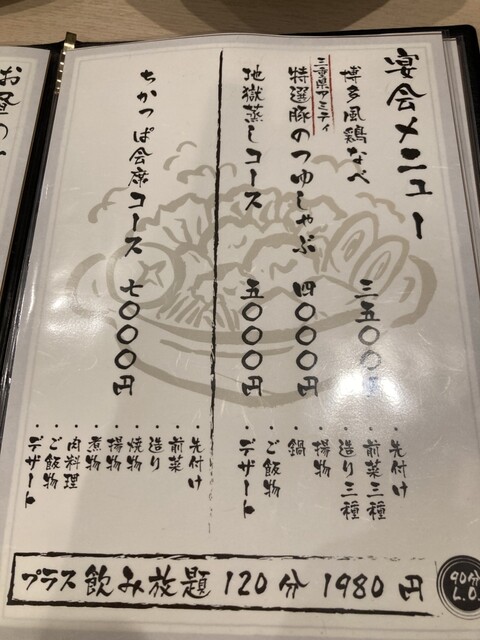 宴会メニュー
博多風鶏なべ 三五〇〇円
三重県アミティ
特選豚のつゆしゃぶ 四〇〇〇円
地獄蒸しコース 五〇〇〇円
・先付け
・前菜三種
・造り三種
・揚物
・鍋
・ご飯物
・デザート
ちかっぱ会席コース 七〇〇〇円
・先付け
・前菜
・造り
・焼物
・揚物
・煮物
・肉料理
・ご飯物
・デザート
プラス飲み放題 120分 1980円
90分
L.O.